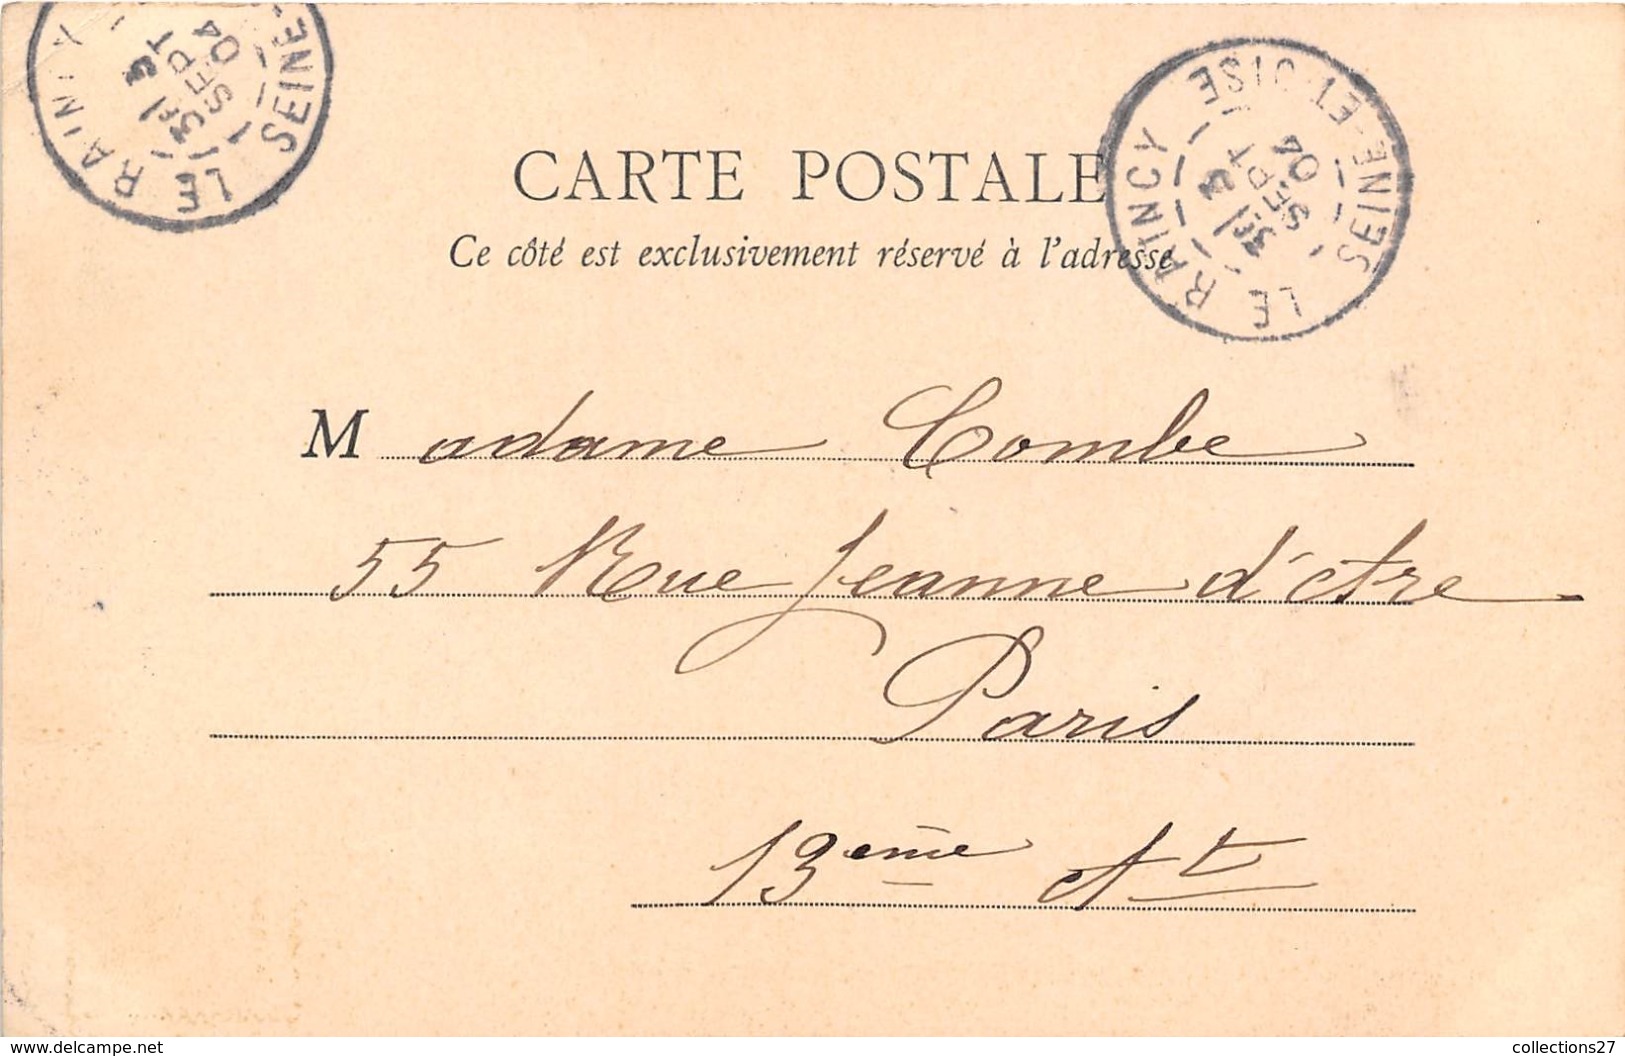 LE RAINCY SEINE
3E/ 3
SEPT
04
LE RAINCY SEINE-ET-OISE
3E/ 3
SEPT
04
CARTE POSTALE
Ce côté est exclusivement réservé à l'adresse
Madame Combe
55 Rue Jeanne d'Arc
Paris
13ème At
www.delcampe.net
collections27